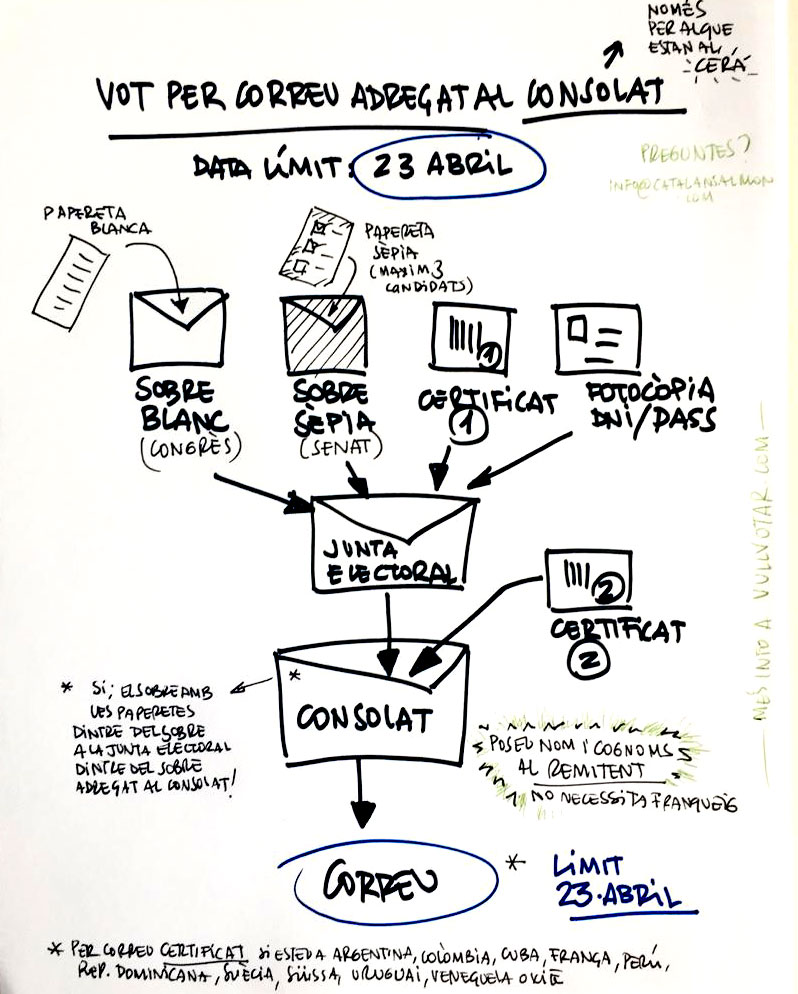 NOMÉS
PER ALQUE
ESTAN AL
CERA
VOT PER CORREU ADREÇAT AL CONSOLAT
DATA LÍMIT: 23 ABRIL
PREGUNTES?
INFO@CATALANSALMON
COM
PAPERETA
BLANCA
PAPERETA
SÈPIA
(MAXIM 3
CANDIDATS)
SOBRE
BLANC
(CONGRÈS)
SOBRE
SÈPIA
(SENAT)
1
CERTIFICAT
1
FOTOCÒPIA
DNI/PASS
JUNTA
ELECTORAL
2
CERTIFICAT
2
MÉS INFO A VULLVOTAR.COM
* SÍ; EL SOBRE AMB
LES PAPERETES
DINTRE DEL SOBRE
A LA JUNTA ELECTORAL
DINTRE DEL SOBRE
ADREÇAT AL CONSOLAT!
*
CONSOLAT
POSEU NOM I COGNOMS
AL REMITENT
NO NECESSITA FRANQUEIG
CORREU
* LÍMIT
23·ABRIL
* PER CORREU CERTIFICAT SI ESTEU A ARGENTINA, COLÒMBIA, CUBA, FRANÇA, PERÚ,
REP. DOMINICANA, SUÈCIA, SUÏSSA, URUGUAI, VENEÇUELA O XILE